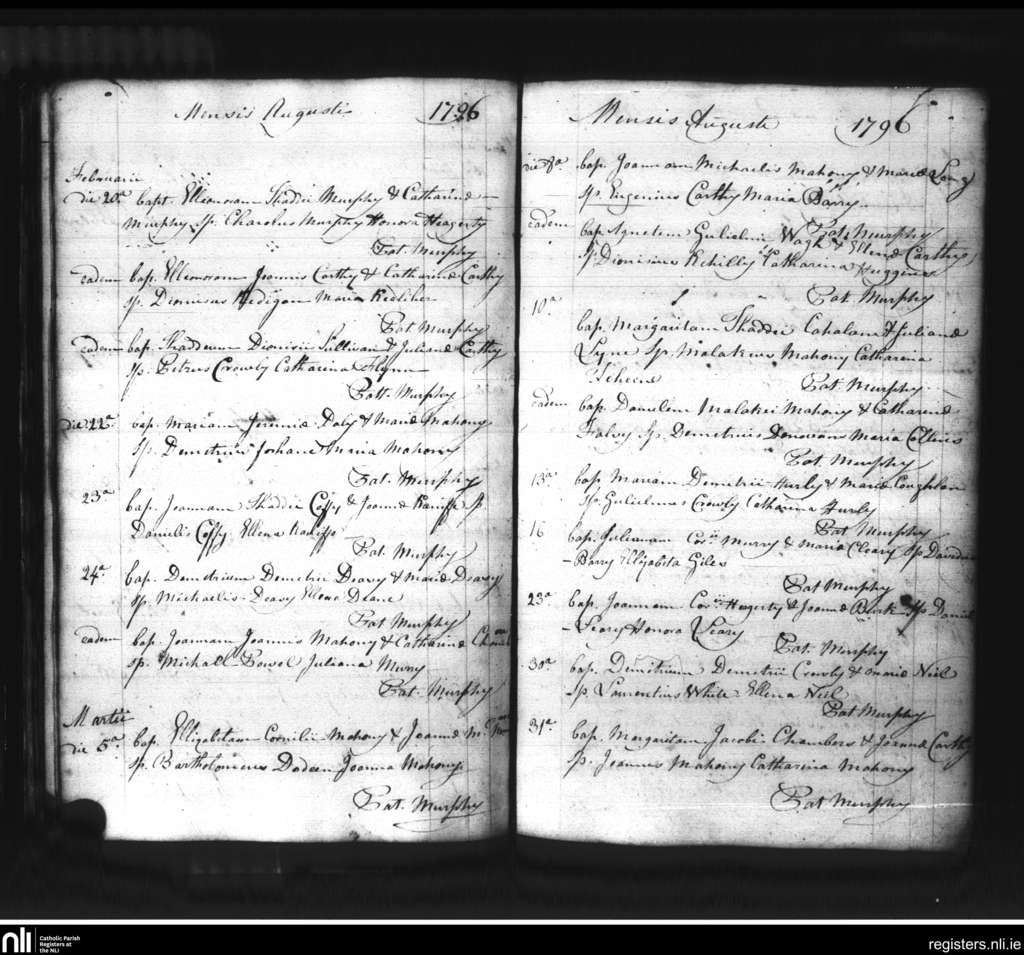 Mensis Augusti 1796
Februarii
die 20a bapt. Ellenoram Thaddei Murphy & Catharinæ
Murphy Sp. Charolus Murphy Honora Heagerty
Pat. Murphy
eadem bap. Ellenoram Joannis Carthy & Catharinæ Carthy
Sp. Dionisius Hedigan Maria
Pat Murphy
eadem bap. Thaddeum Dionisii Sullivan & Julianæ Carthy
Sp. Petrus Crowly Catharina Flynn
Patt. Murphy
die 22a bap. Mariam Jeremiæ Daly & Mariæ Mahony
Sp. Demetrius Maria Mahony
Pat. Murphy
23a bap. Joannam Thaddei Coffy & Joannæ Sp
Danielis Coffy Ellena
Pat. Murphy
24a bap. Demetrium Demetrii Deasy & Mariæ Deasy
Sp. Michaelis Deasy Ellena
Pat Murphy
eadem bap. Joannam Joannis Mahony & Catharinæ
Sp. Michael Juliana
Pat. Murphy
Martii
die 5a bap. Ellizabetam Cornilii Mahony & Joannæ
Sp. Bartholomeus Joanna Mahony
Pat. Murphy
Mensis Augusti 1796
die 8a bap. Joannam Michaelis Mahony & Mariæ Long
Sp. Eugenius Carthy Maria Barry
Pat Murphy
eadem bap. Agnetem Gulielmi & Ellenæ Carthy
Sp. Dionisius Catharina Huggins
Pat. Murphy
10a
bap. Margaritam Thaddei Cahalane & Julianæ
Lyne Sp. Malakeus Mahony Catharina
Pat Murphy
eadem bap. Danielem Malakei Mahony & Catharinæ
Falvy Sp. Demetrius Donovan Maria Collins
Pat. Murphy
13a bap. Mariam Demetrii Hurly & Mariæ Coughlan
Sp. Gulielmus Crowly Catharina Hurly
Pat Murphy
16 bap. Julianam Corii Murry & Maria Cleary Sp David
Barry Ellizabita Giles
Pat Murphy
23a bap. Joannam Corii Hegerty & Joannæ Burk Sp Daniel
Leary Honora Leary
Pat. Murphy
30a bap. Demitrium Demetrii Crowly & Mariæ Neil
Sp Laurentius White Ellena Neil
Pat Murphy
31a bap. Margaritam Jacobi Chambers & Joannæ Carthy
Sp. Joannes Mahony Catharina Mahony
Pat Murphy
nli Catholic Parish
Registers at
the NLI
registers.nli.ie